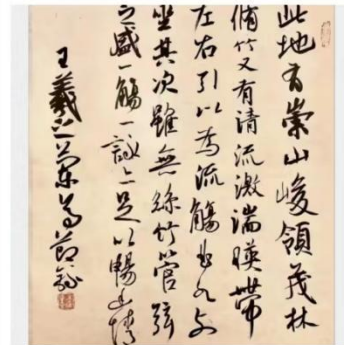 此地有崇山峻領茂林
脩竹又有清流激湍暎帶
左右引以為流觴曲水列
坐其次雖無絲竹管弦
之盛一觴一詠亦足以暢幽情
王羲之蘭亭節錄